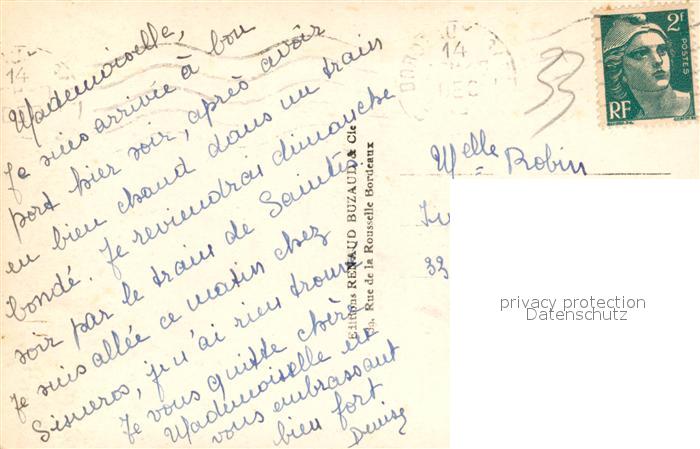 Mademoiselle,
Je suis arrivée à bon
port hier soir, après avoir
eu bien chaud dans un train
bondé. Je reviendrai dimanche
soir par le train de Saintes.
Je suis allée ce matin chez
Sisneros, je n'ai rien trouvé
Je vous quitte chère
Mademoiselle en
vous embrassant
bien fort
Denise
Editions RENAUD BUZAUD & Cie
Rue de la Rousselle Bordeaux
14
14
DEC
33
2f
POSTES
RF
Melle Robin
33
privacy protection
Datenschutz